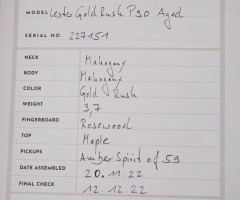 MODEL Lester Gold Rush P90 Aged
SERIAL NO. 227151
NECK Mahogany
BODY Mahogany
COLOR Gold Rush
WEIGHT 3,7
FINGERBOARD Rosewood
TOP Maple
PICKUPS Amber Spirit of 59
DATE ASSEMBLED 20.11.22
FINAL CHECK 12.12.22